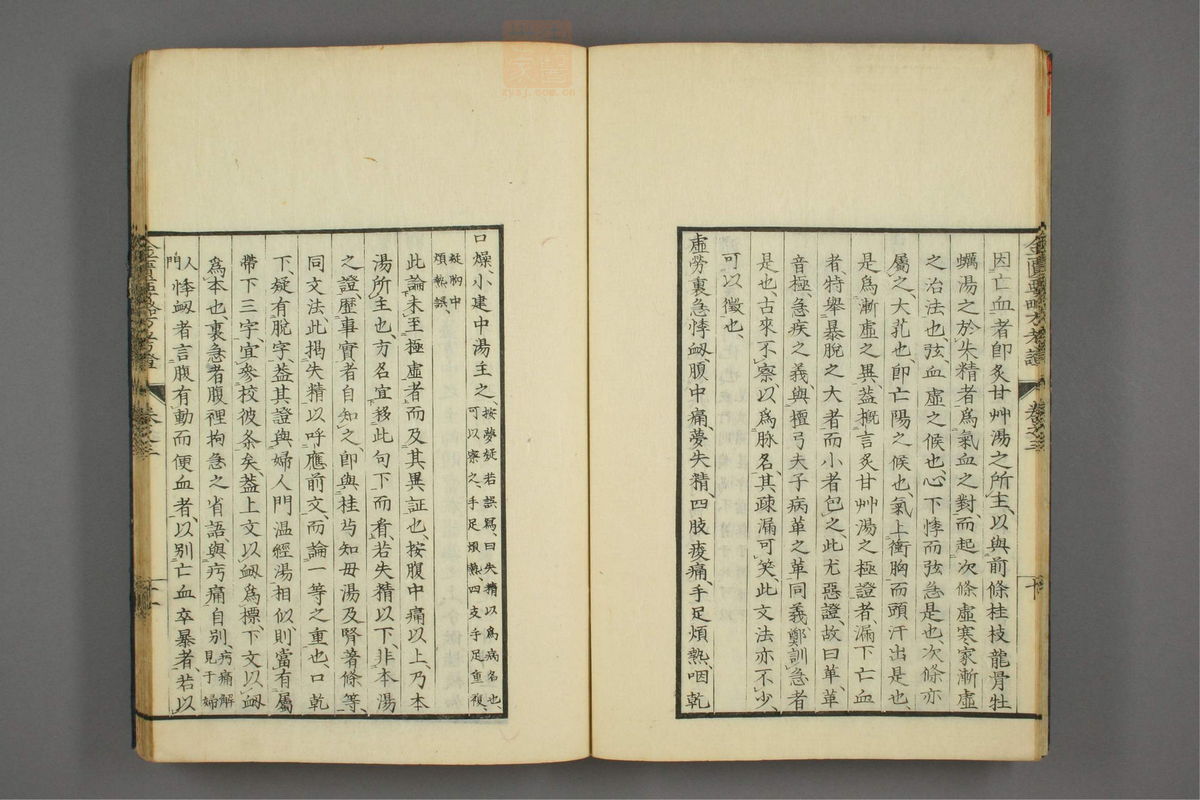 因亡血者即炙甘艸湯之所主以與前條桂枝龍骨牡
蠣湯之於失精者爲氣血之對而起次條虛寒家漸虛
之治法也弦血虛之候也心下悸而弦急是也次條亦
屬之大芤也即亡陽之候也氣上衝胸而頭汗出是也
是爲漸虛之異蓋概言炙甘艸湯之極證者漏下亡血
者特舉暴脫之大者而小者包之此尤惡證故曰革革
音極急疾之義與檀弓夫子病革之革同義鄭訓急者
是也古來不察以爲脉名其疎漏可笑此文法亦不少
可以徵也
虛勞裏急悸衂腹中痛夢失精四肢痠痛手足煩熱咽乾
金匱要略方考證 卷之三 十
口燥小建中湯主之按夢疑若誤爲曰失精以爲病名也
可以察之手足煩熱四支手足重複
疑胸中
煩熱誤
此論未至極虛者而及其異証也按腹中痛以上乃本
湯所主也方名宜移此句下而看若失精以下非本湯
之證歷事實者自知之即與桂芍知毋湯及腎著條等
同文法此揭失精以呼應前文而論一等之重也口乾
下疑有脫字蓋其證與婦人門温經湯相似則當有屬
帶下三字宜參校彼条矣蓋上文以衂爲標下文以衂
爲本也裏急者腹裡拘急之省語與㽲痛自别㽲痛解
見于婦
人
門悸衂者言腹有動而便血者以别亡血卒暴者若以
金匱要略方考證 卷之三 十一